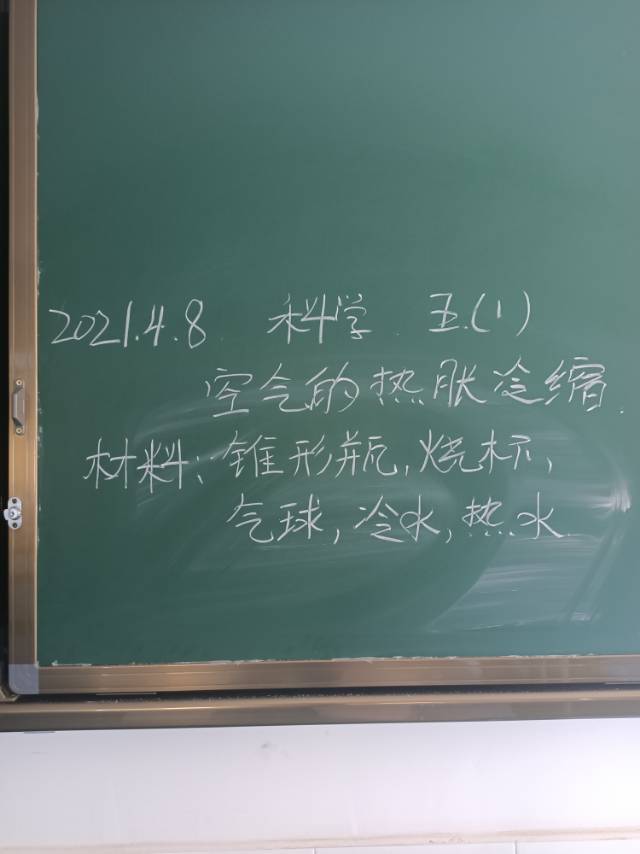 2021.4.8 科学. 五.(1)
空气的热胀冷缩.
材料: 锥形瓶, 烧杯,
气球, 冷水, 热水.